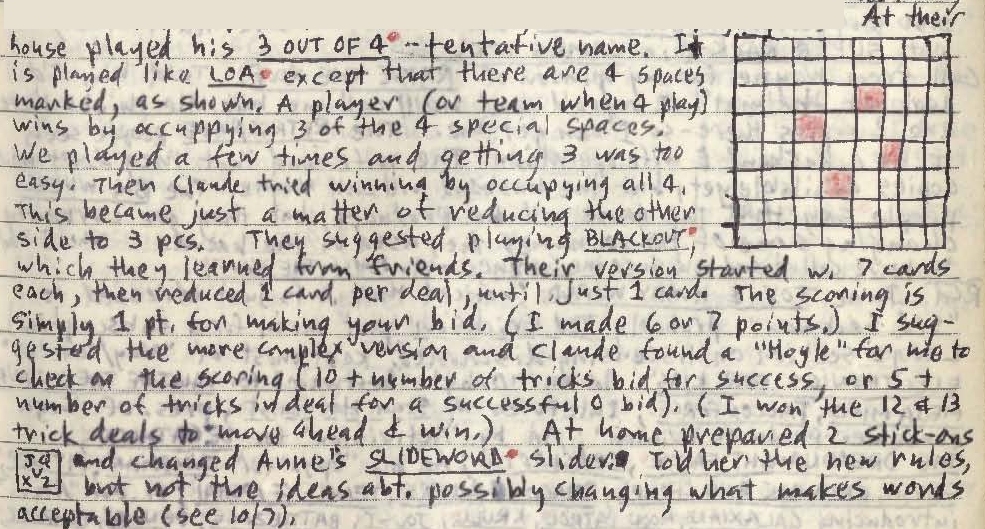 At their
house played his 3 OUT OF 4 -- tentative name. It
is played like LOA except that there are 4 spaces
marked, as shown. A player (or team when 4 play)
wins by occuppying 3 of the 4 special spaces.
We played a few times and getting 3 was too
easy. Then Claude tried winning by occupying all 4.
This became just a matter of reducing the other
side to 3 pcs. They suggested playing BLACKOUT,
which they learned from friends. Their version started w. 7 cards
each, then reduced 1 card per deal, until just 1 card. The scoring is
simply 1 pt. for making your bid. (I made 6 or 7 points.) I sug-
gested the more complex version and Claude found a "Hoyle" for me to
check on the scoring (10 + number of tricks bid for success, or 5 +
number of tricks in deal for a successful 0 bid). (I won the 12 & 13
trick deals to move ahead & win.) At home prepared 2 stick-ons
JQ
XVZ
and changed Anne's SLIDEWORD slider. Told her the new rules,
but not the ideas abt. possibly changing what makes words
acceptable (see 10/7).